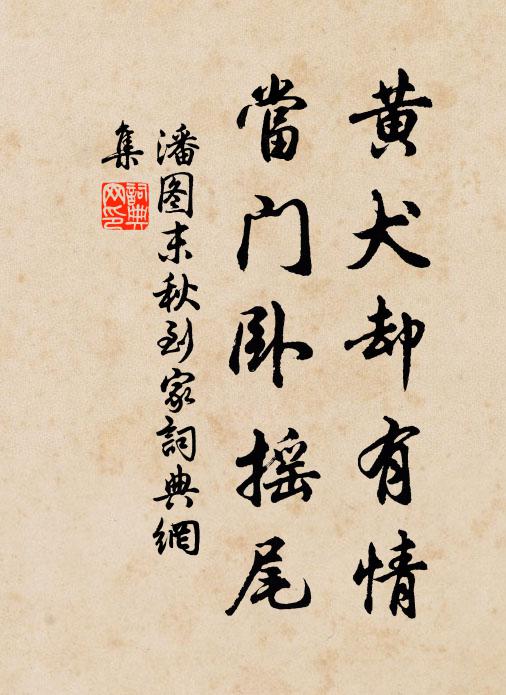 黄犬却有情
當门卧摇尾
潘图末秋到家詞典網
集
詞典网印